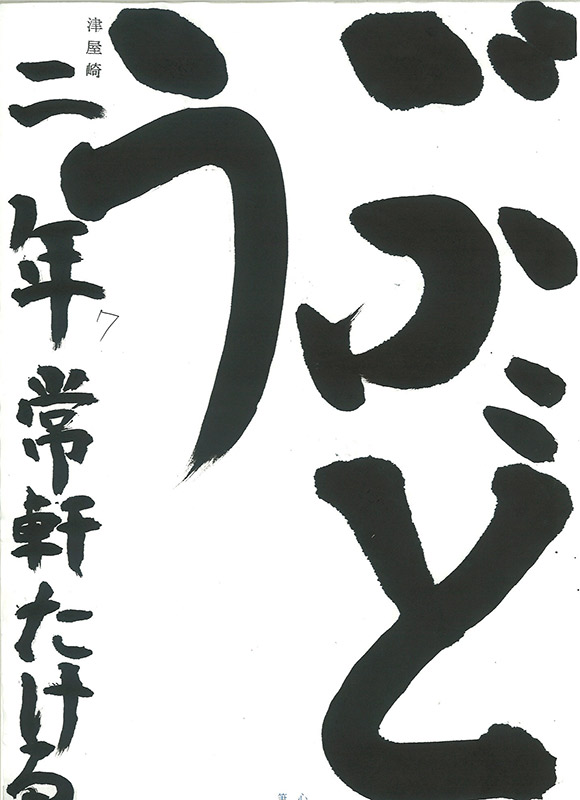 ぶど
う
津屋崎
二年常軒たける
7
心
筆